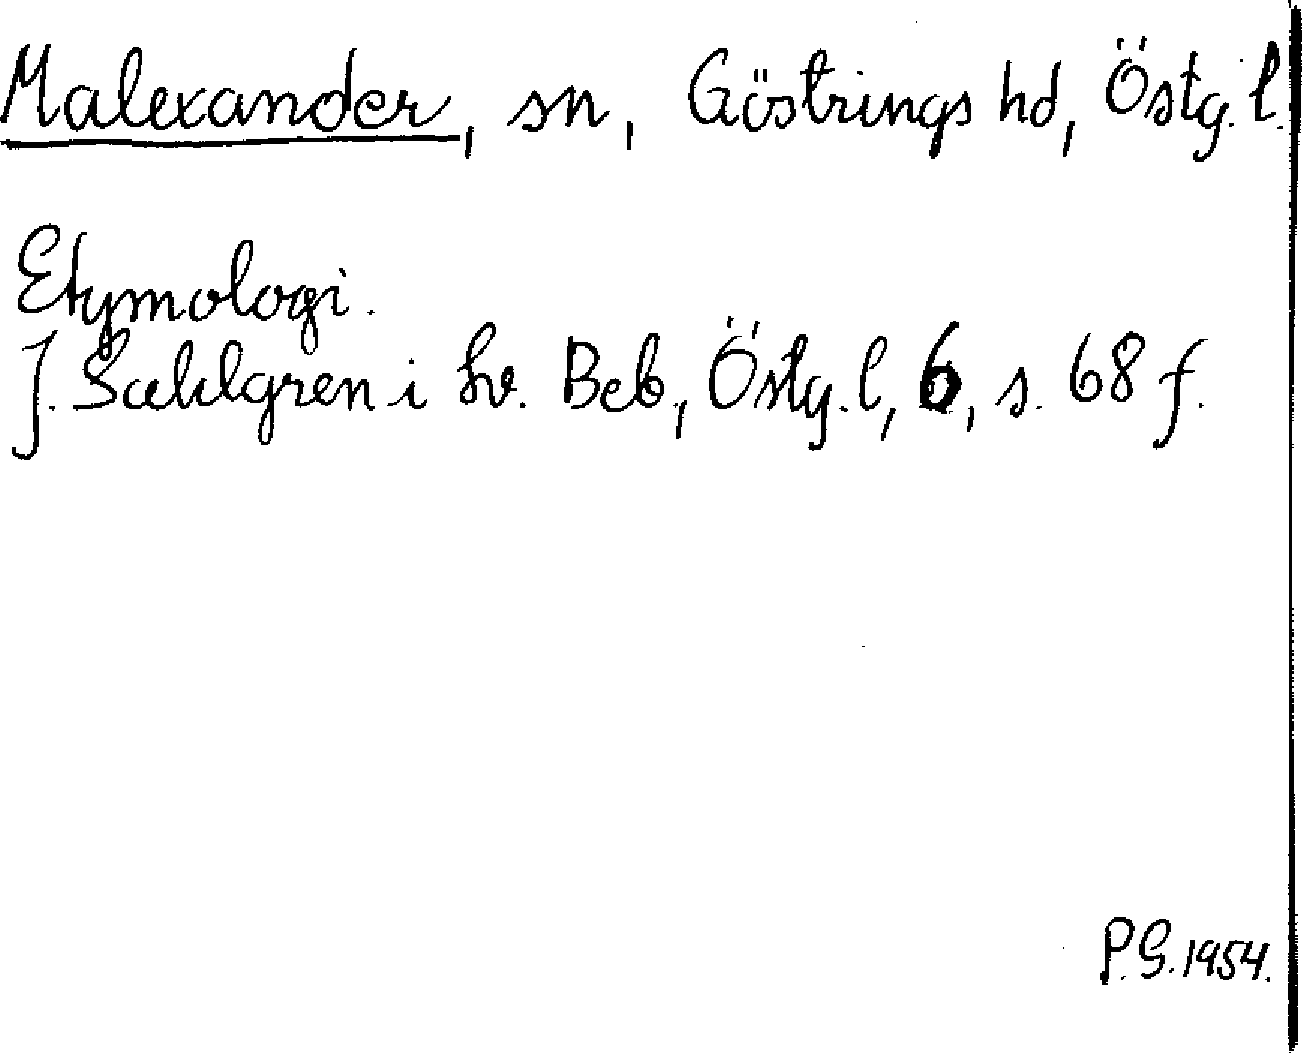 Malexander, sn, Göstrings hd, Östg. l.
Etymologi.
J. Sahlgren i Sv. Beb, Östg. l, 6, s. 68 f.
P.G. 1954.